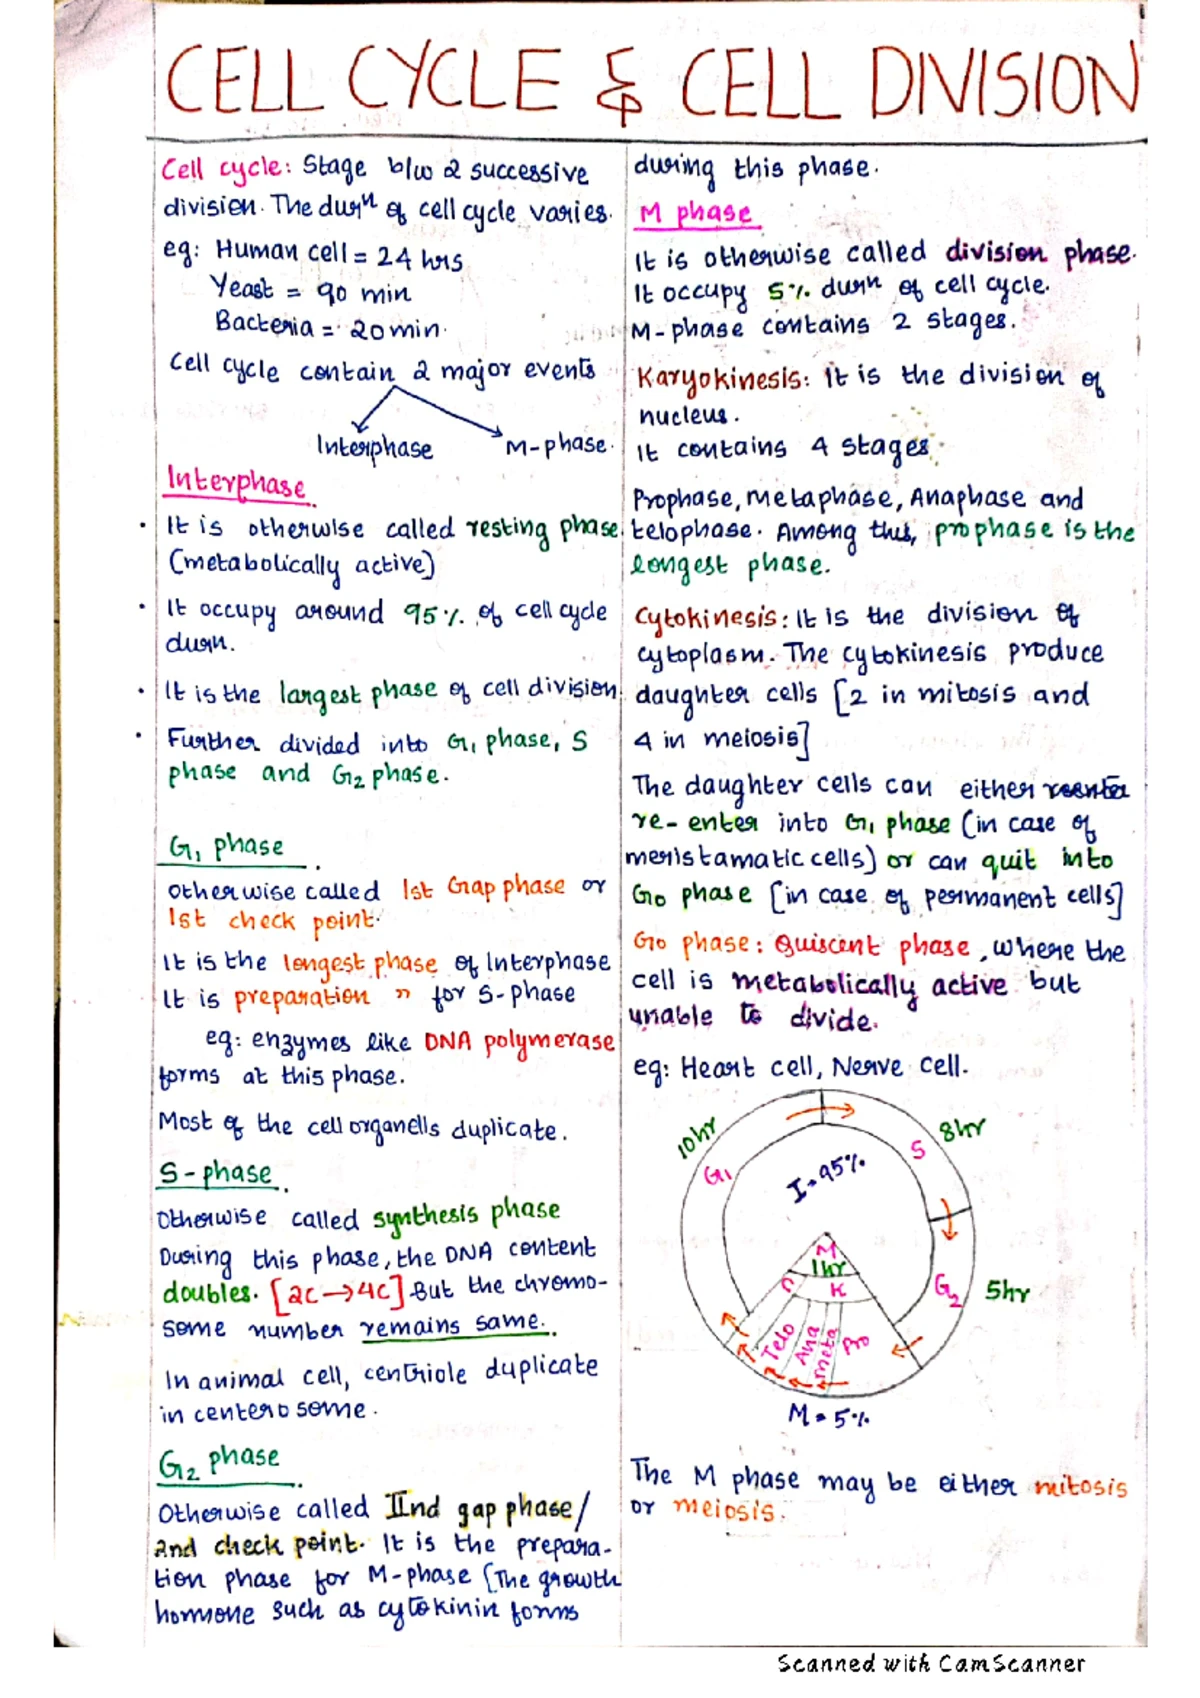 CELL CYCLE & CELL DIVISION
Cell cycle: Stage b/w 2 successive
division. The durn of cell cycle varies.
eg: Human cell = 24 hrs
Yeast = 90 min
Bacteria = 20 min.
Cell cycle contain 2 major events
Interphase M-phase.
Interphase
• It is otherwise called resting phase.
(metabolically active)
• It occupy around 95% of cell cycle
durn.
• It is the largest phase of cell division.
• Further divided into G1 phase, S
phase and G2 phase.
G1 phase
Otherwise called 1st Gap phase or
1st check point.
It is the longest phase of Interphase
It is preparation " for S-phase
eg: enzymes like DNA polymerase
forms at this phase.
Most of the cell organells duplicate.
S-phase
Otherwise called synthesis phase
During this phase, the DNA content
doubles. [2C→4C] But the chromo-
some number remains same.
In animal cell, centriole duplicate
in centerosome.
G2 phase
Otherwise called IInd gap phase/
2nd check point. It is the prepara-
tion phase for M-phase (The growth
hormone such as cytokinin forms
during this phase.
M phase
It is otherwise called division phase.
It occupy 5% durn of cell cycle.
M-phase contains 2 stages.
Karyokinesis: It is the division of
nucleus.
It contains 4 stages.
Prophase, Metaphase, Anaphase and
telophase. Among this, prophase is the
longest phase.
Cytokinesis: It is the division of
cytoplasm. The cytokinesis produce
daughter cells [2 in mitosis and
4 in meiosis]
The daughter cells can either
re-enter into G1 phase (in case of
meristamatic cells) or can quit into
G0 phase [in case of permanent cells]
G0 phase: Quiscent phase, where the
cell is metabolically active but
unable to divide.
eg: Heart cell, Nerve cell.
10hr
8hr
G1
S
I = 95%
M
1hr
C
K
G2
5hr
Telo
Ana
Meta
Pro
M = 5%
The M phase may be either mitosis
or meiosis.
Scanned with CamScanner